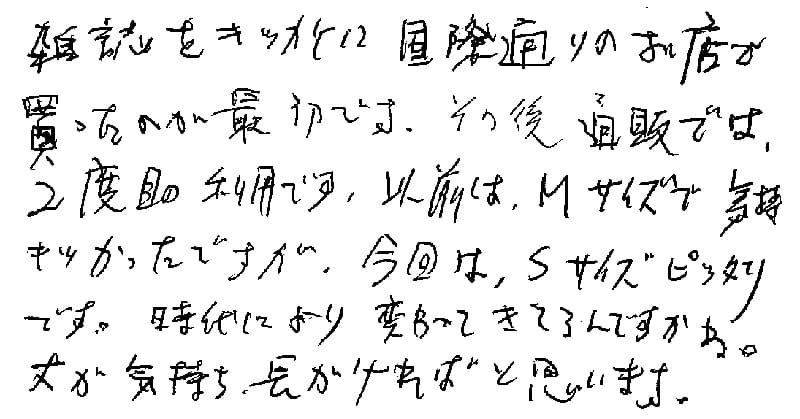 雑誌をきっかけに国際通りのお店が
買ったのが最初です。その後通販では、
2度目の利用です。以前は、Mサイズで気持
キツかったですが、今回は、Sサイズピッタリ
です。時代により変わってきてるんですかね。
丈が気持ち長がければと思います。